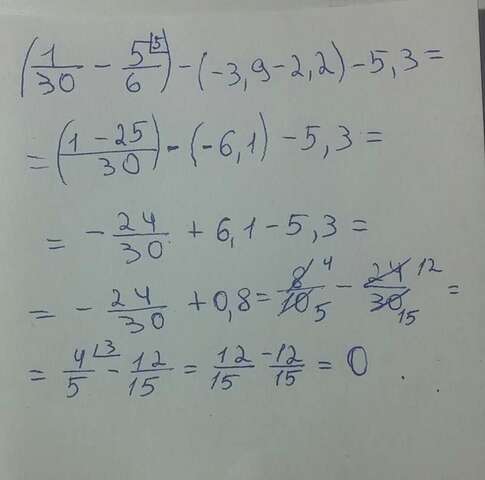 (1/30 - 5⌊5/6) - (-3,9-2,2) - 5,3 =
= (1-25/30) - (-6,1) - 5,3 =
= - 24/30 + 6,1 - 5,3 =
= - 24/30 + 0,8 = 8/10 4/5 - 24/30 12/15 =
= 4⌊3/5 - 12/15 = 12/15 - 12/15 = 0